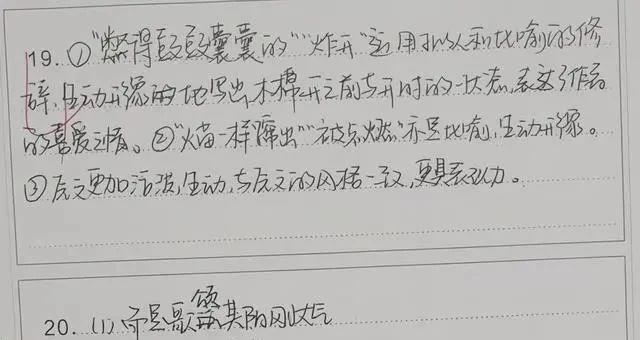 19. ①“憋得鼓鼓囊囊的”“炸开”运用拟人和比喻的修
辞,生动形象的地写出木棉开之前与开时的状态,表达了作者
的喜爱之情。②“火苗一样蹿出”“被点燃”亦是比喻,生动形象。
③后文更加活泼,生动,与后文的风格一致,更具表现力。
20. (1) 而是歌颂其阳刚壮气